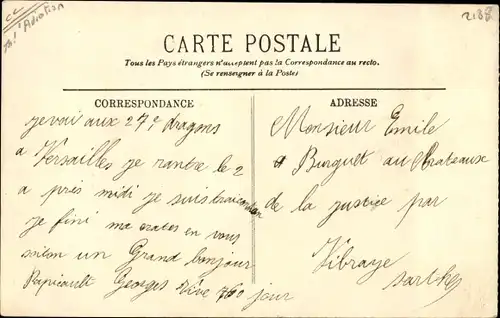 Bl. d'Aviation
2188
CARTE POSTALE
Tous les Pays étrangers n'acceptent pas la Correspondance au recto.
(Se renseigner à la Poste)
CORRESPONDANCE
je vai aux 27e dragons
a Versailles je rantre le 2
a près midi je suis
je fini ma cartes en vous
un Grand bonjour
Georges Vive 760 jour
ADRESSE
Monsieur Emile
Burguet au Chateaux
de la justice par
Vibraye
Sarthe